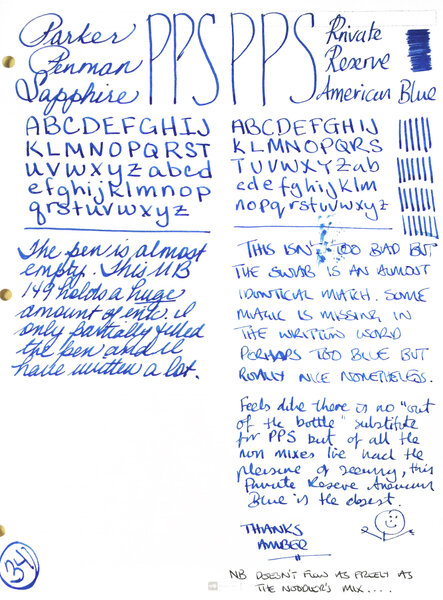 Parker
Penman
Sapphire
PPS
ABCDEFGHIJ
KLMNOPQRST
uvwxyzabcd
efghijklmnop
qrstuvwxyz
The pen is almost
empty. This MB
149 holds a huge
amount of ink. I
only partially filled
the pen and I
have written a lot.
34
PPS
Private
Reserve
American Blue
ABCDEFGHIJ
KLMNOPQRS
TUVWXYZab
cdefghijklm
nopqrstuvwxyz
THIS ISN'T TOO BAD BUT
THE SWAB IS AN ALMOST
IDENTICAL MATCH. SOME
MAGIC IS MISSING IN
THE WRITTEN WORD
PERHAPS TOO BLUE BUT
REALLY NICE NONETHELESS.
Feels like there is no "out
of the bottle" substitute
for PPS but of all the
non mixes I've had the
pleasure of seeing, this
Private Reserve American
Blue is the closest.
THANKS
AMBER
NB DOESN'T FLOW AS FREELY AS
THE NOODLER'S MIX....